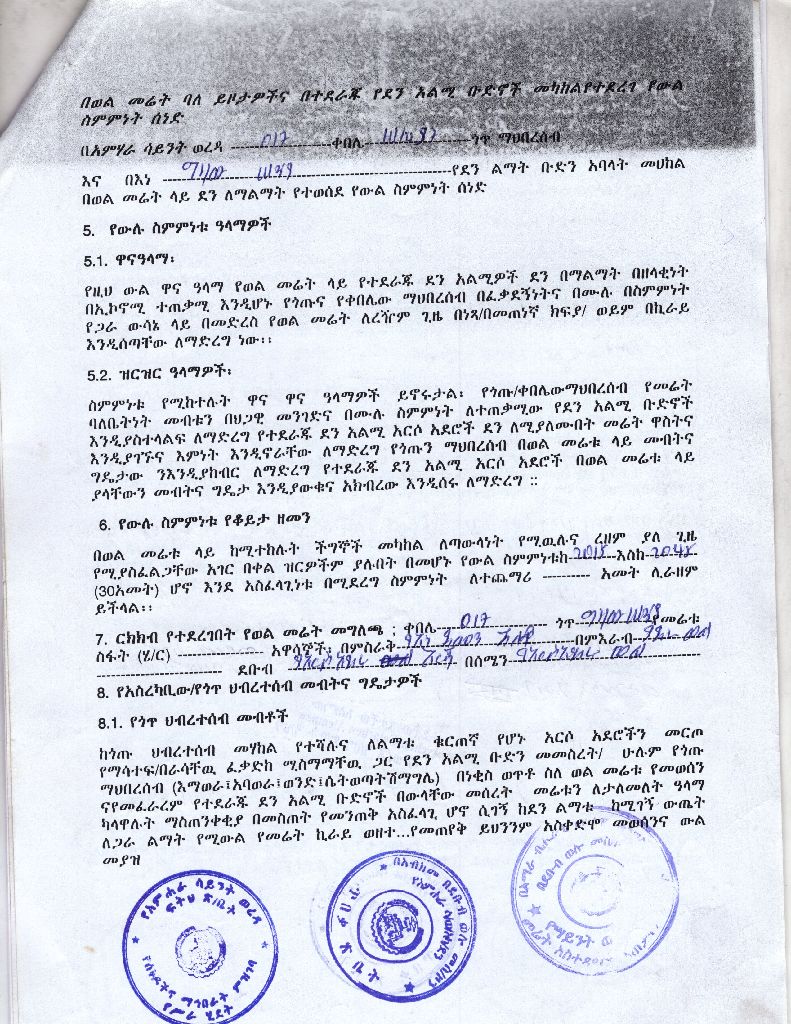 በወል መሬት ባለ ይዞታዎችና በተደራጁ የደን አልሚ ቡድኖች መካከልየተደረገ የውል
ስምምነት ሰነድ
በአምሃራ ሳይንት ወረዳ ---------- 017 ----------ቀበሌ ---------- ጎጥ ማህበረሰብ
እና በእነ ----------------------------------------የደን ልማት ቡድን አባላት መሀከል
በወል መሬት ላይ ደን ለማልማት የተወሰደ የውል ስምምነት ሰነድ
5. የውሉ ስምምነቱ ዓላማዎች
5.1. ዋናዓላማ፡
የዚህ ውል ዋና ዓላማ የወል መሬት ላይ የተደራጁ ደን አልሚዎች ደን በማልማት በዘላቂነት
በኢኮኖሚ ተጠቃሚ እንዲሆኑ የጎጡና የቀበሌው ማህበረሰብ በፈቃደኝነትና በሙሉ በስምምነት
የጋራ ውሳኔ ላይ በመድረስ የወል መሬት ለረዥም ጊዜ በነጻ/በመጠነኛ ክፍያ/ ወይም በኪራይ
እንዲሰጣቸው ለማድረግ ነው፡፡
5.2. ዝርዝር ዓላማዎች፡
ስምምነቱ የሚከተሉት ዋና ዋና ዓላማዎች ይኖሩታል፡ የጎጡ/ቀበሌውማህበረሰብ የመሬት
ባለቤትነት መብቱን በህጋዊ መንገድና በሙሉ ስምምነት ለተጠቃሚው የደን አልሚ ቡድኖች
እንዲያስተላልፍ ለማድረግ የተደራጁ ደን አልሚ አርሶ አደሮች ደን ለሚያለሙበት መሬት ዋስትና
እንዲያገኙና እምነት እንዲኖራቸው ለማድረግ የጎጡን ማህበረሰብ በወል መሬቱ ላይ መብትና
ግዴታው ንእንዲያከብር ለማድረግ የተደራጁ ደን አልሚ አርሶ አደሮች በወል መሬቱ ላይ
ያላቸውን መብትና ግዴታ እንዲያውቁና አክብረው እንዲሰሩ ለማድረግ ፡፡
6. የውሉ ስምምነቱ የቆይታ ዘመን
በወል መሬቱ ላይ ከሚተከሉት ችግኞች መካከል ለጣውላነት የሚዉሉና ረዘም ያለ ጊዜ
የሚያስፈልጋቸው አገር በቀል ዝርዎችም ያሉበት በመሆኑ የውል ስምምነቱከ-2018-----እስከ-2048---
(30አመት) ሆኖ እንደ አስፈላጊነቱ በሚደረግ ስምምነት ለተጨማሪ ---------- አመት ሊራዘም
ይችላል፡፡
7. ርክክብ የተደረገበት የወል መሬት መግለጫ ፡ ቀበሌ-----017---------- ጎጥ---------- የመሬቱ
ስፋት (ሄ/ር) ---------------- አዋሳኞች፡ በምስራቅ--------------------በምእራብ----------
---------------------- ደቡብ -------------------- በሰሜን--------------------
8. የአስረካቢው/የጎጥ ህብረተሰብ መብትና ግዴታዎች
8.1. የጎጥ ህብረተሰብ መብቶች
ከጎጡ ህብረተሰብ መሃከል የተሻሉና ለልማቱ ቁርጠኛ የሆኑ አርሶ አደሮችን መርጦ
የማሳተፍ/በራሳቸዉ ፈቃድከ ሚስማማቸዉ ጋር የደን አልሚ ቡድን መመስረት/ ሁሉም የጎጡ
ማህበረሰብ (እማወራ፤አባወራ፤ወንድ፤ሴትወጣትሽማግሌ) በነቂስ ወጥቶ ስለ ወል መሬቱ የመወሰን
ናየመፈራረም የተደራጁ ደን አልሚ ቡድኖች በውላቸው መሰረት መሬቱን ለታለመለት ዓላማ
ካላዋሉት ማስጠንቀቂያ በመስጠት የመንጠቅ አስፈላጊ ሆኖ ሲገኝ ከደን ልማቱ ከሚገኝ ውጤት
ለጋራ ልማት የሚውል የመሬት ኪራይ ወዘተ...የመጠየቅ ይህንንም አስቀድሞ መወሰንና ውል
መያዝ
የአምሐራ ሳይንት ወረዳ
ፍትህ ጽ/ቤት
የሰነዶችና ማኅበራት ምዝገባ
የሥራ ሂደት